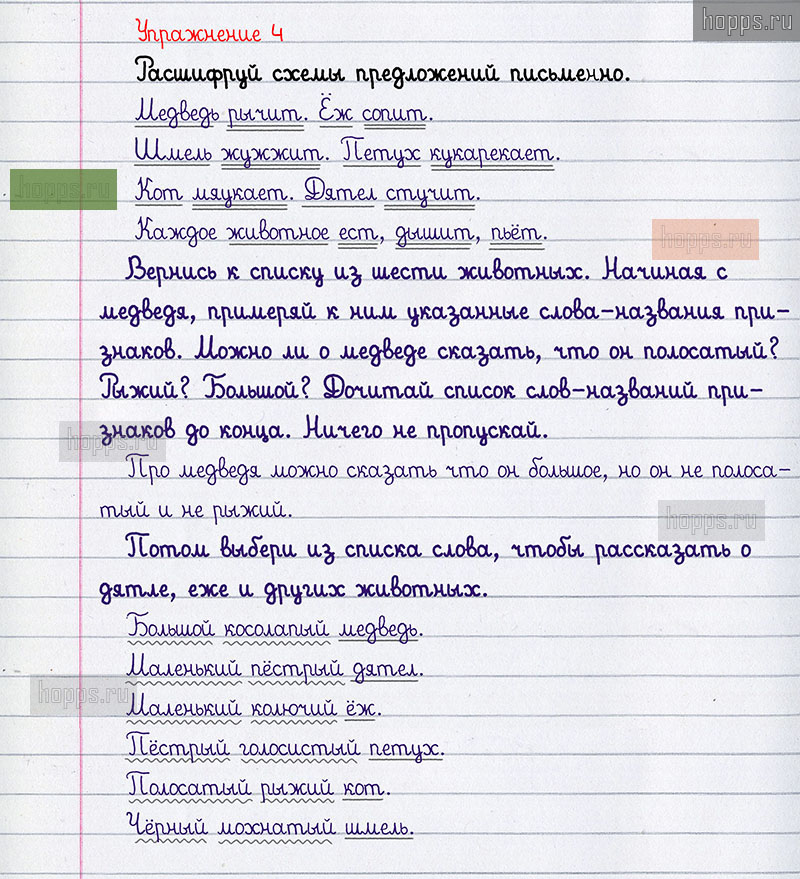 hopps.ru
Упражнение 4
Расшифруй схемы предложений письменно.
Медведь рычит. Ёж сопит.
Шмель жужжит. Петух кукарекает.
hopps.ru
Кот мяукает. Дятел стучит.
Каждое животное ест, дышит, пьёт.
hopps.ru
Вернись к списку из шести животных. Начиная с
медведя, примеряй к ним указанные слова-названия при-
знаков. Можно ли о медведе сказать, что он полосатый?
Рыжий? Большой? Дочитай список слов-названий при-
знаков до конца. Ничего не пропускай.
hopps.ru
Про медведя можно сказать что он большое, но он не полоса-
тый и не рыжий.
hopps.ru
Потом выбери из списка слова, чтобы рассказать о
дятле, еже и других животных.
Большой косолапый медведь.
Маленький пёстрый дятел.
hopps.ru
Маленький колючий ёж.
Пёстрый голосистый петух.
Полосатый рыжий кот.
Чёрный мохнатый шмель.